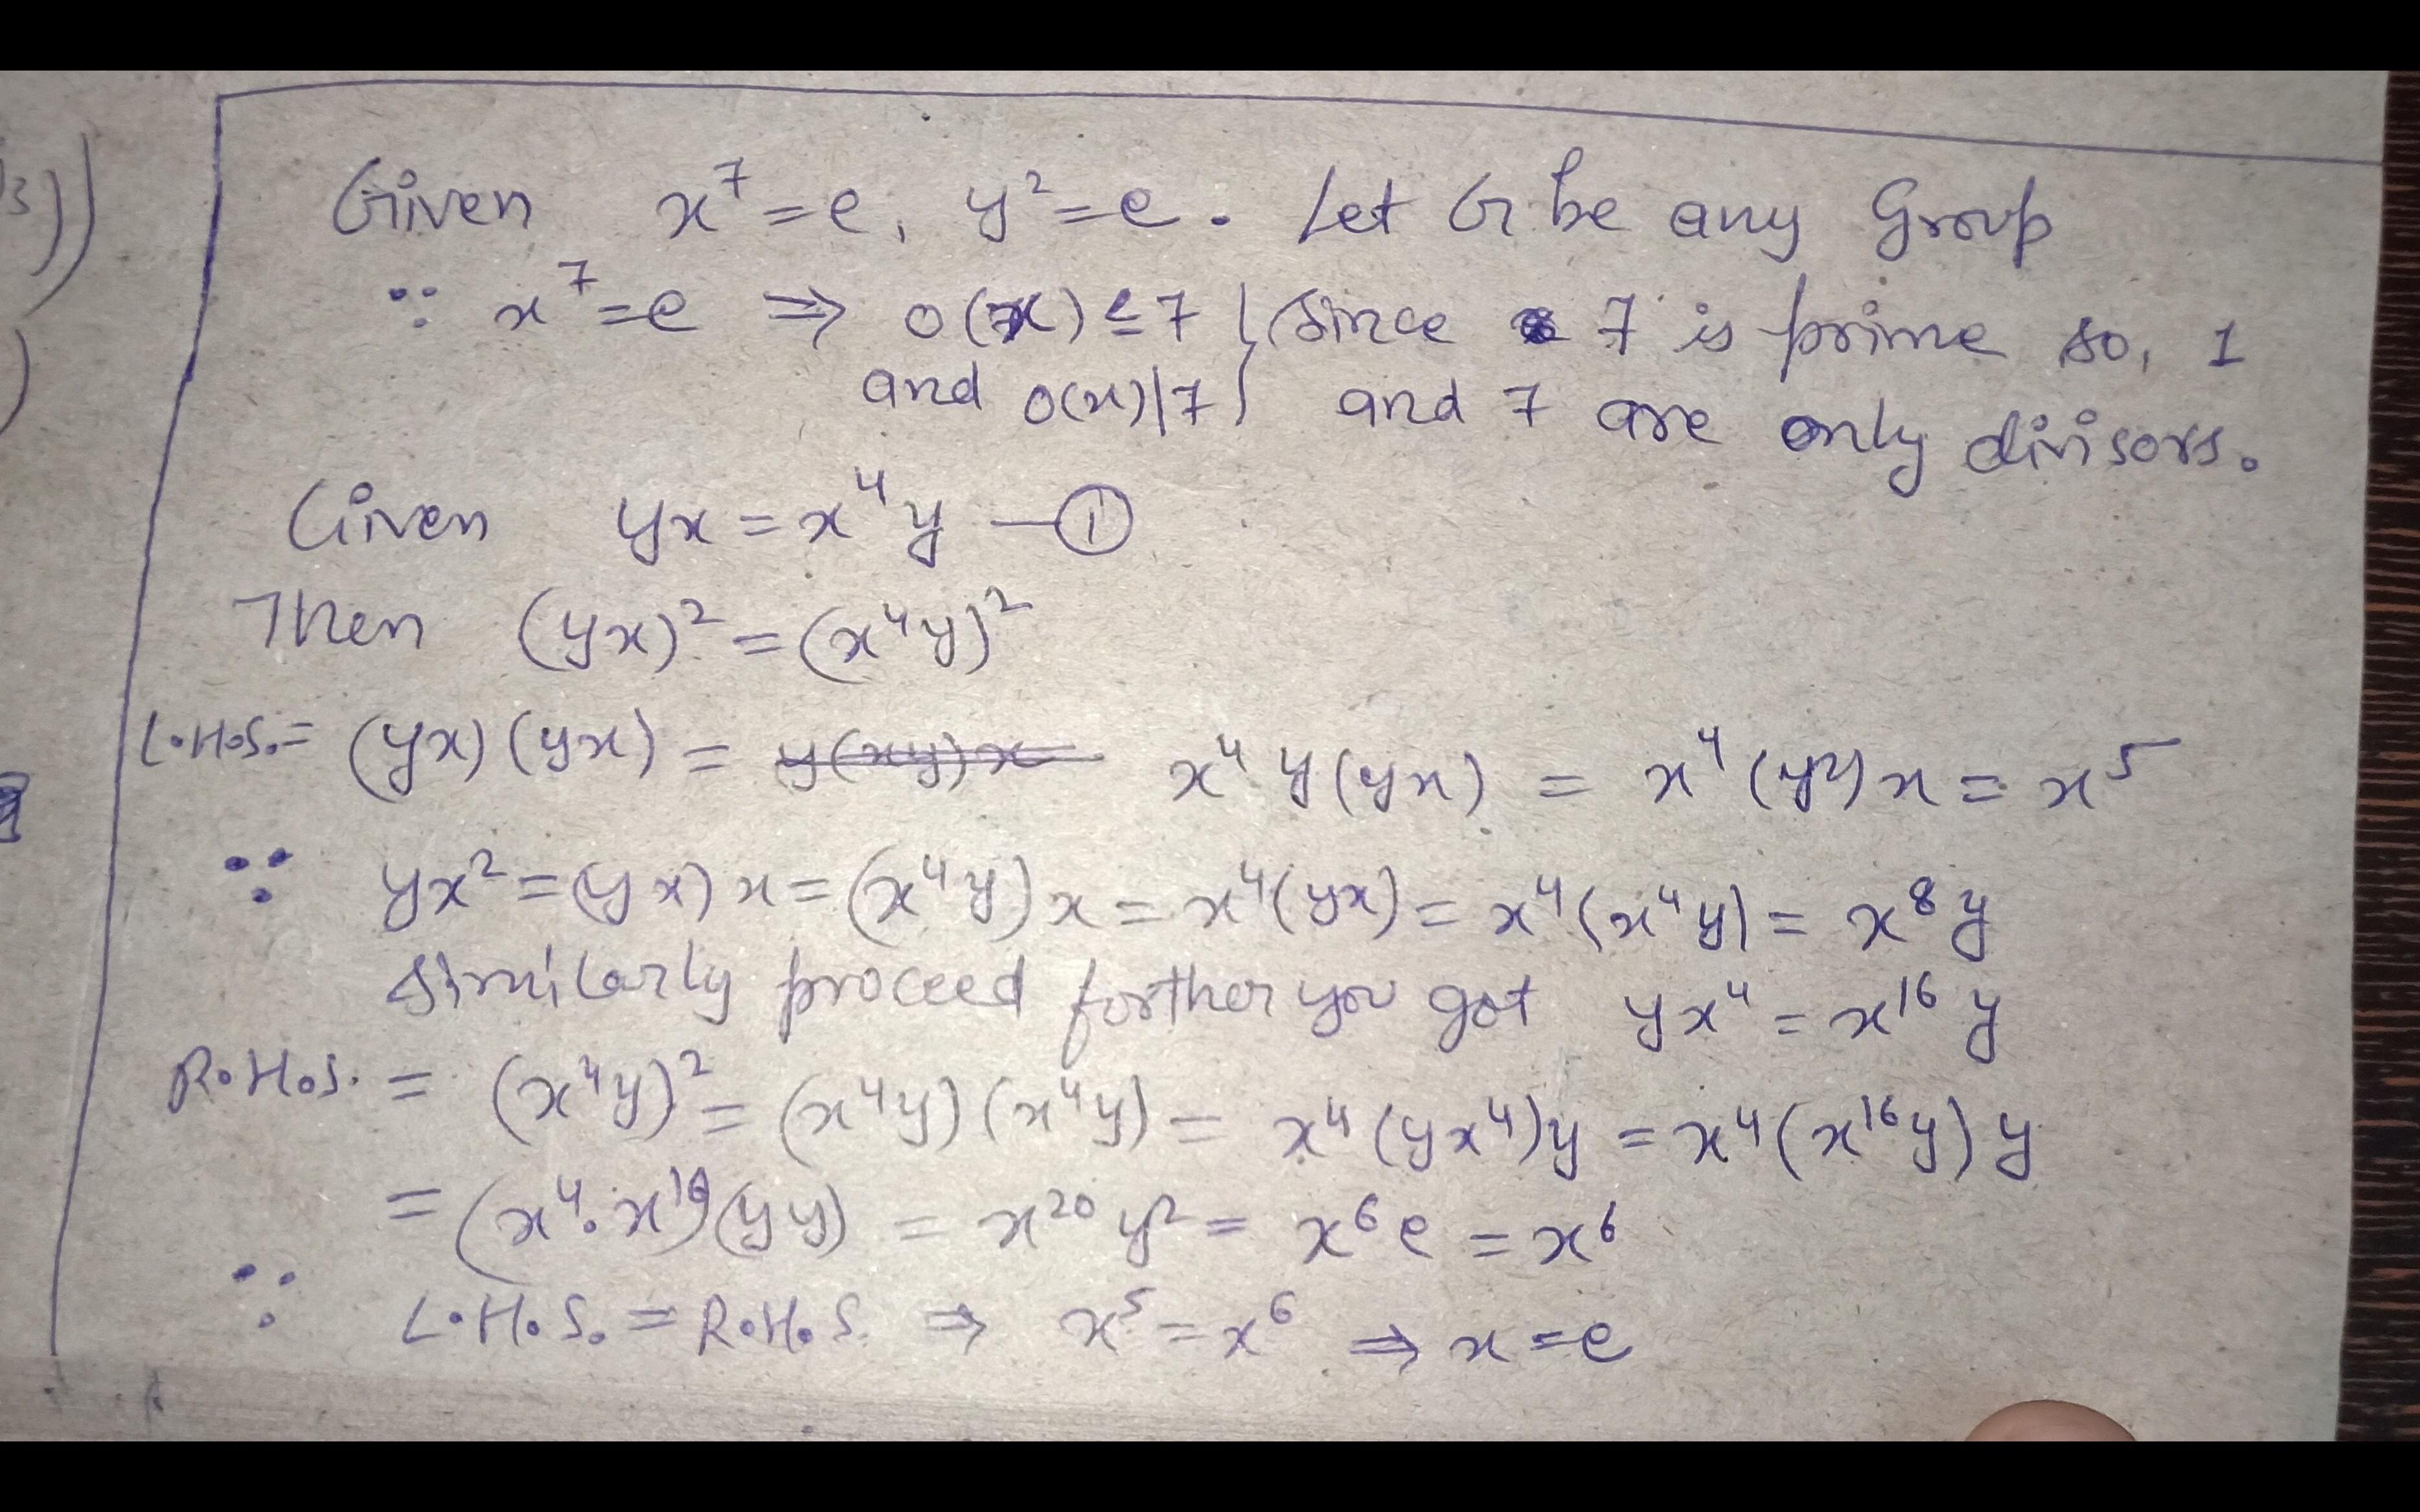 Given x⁷=e, y²=e. Let G be any Group
∵ x⁷=e ⇒ o(x) ≤ 7 } Since 7 is prime so, 1
and o(x)|7 } and 7 are only divisors.
Given yx = x⁴y —①
Then (yx)² = (x⁴y)²
L.H.S. = (yx)(yx) = y(xy)x x⁴y(yx) = x⁴(y²)x = x⁵
∵ yx² = (yx)x = (x⁴y)x = x⁴(yx) = x⁴(x⁴y) = x⁸y
Similarly proceed forther you got yx⁴ = x¹⁶y
R.H.S. = (x⁴y)² = (x⁴y)(x⁴y) = x⁴(yx⁴)y = x⁴(x¹⁶y)y
= (x⁴.x¹⁶)(yy) = x²⁰y² = x⁶e = x⁶
∵ L.H.S. = R.H.S. ⇒ x⁵ = x⁶ ⇒ x = e